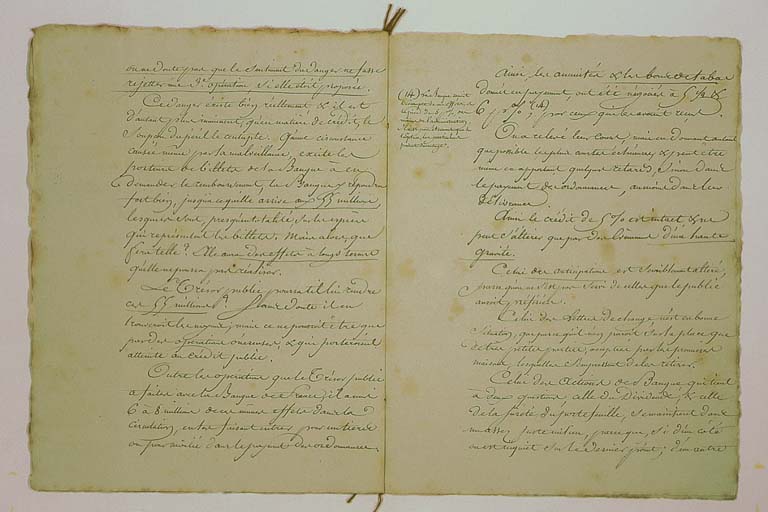 on ne doute pas que le sentiment du danger ne fasse
rejetter une 3e opération si elle était proposée.
Ce danger existe bien réellement & il est
d'autant plus imminent, qu'en matière de crédit, le
soupçon du péril le centuple. Qu'une circonstance
causée même par la malveillance, excite les
porteurs de billets de la Banque à en
demander le remboursement, la Banque y répondra
fort bien, jusqu'à ce qu'elle arrive aux 55 millions
lesquels sont, presqu'en totalité, sur les espèces
qui représentent les billets. Mais alors, que
fera-t-elle ? Elle aura des effets à longs termes
qu'elle ne pourra pas réaliser.
Le Trésor public pourra-t-il lui rendre
ces 55 millions ? Sans doute il en
trouverait les moyens, mais ce ne pourrait être que
par des opérations onéreuses, & qui porteraient
atteinte au crédit public.
Outre les opérations que le Trésor public
a faites avec la Banque de France, il a mis
6 à 8 millions de ces mêmes effets dans la
circulation, en les faisant entrer pour un tiers
ou pour moitié dans le payement des ordonnances
Ainsi, les annuités & les bons de tabac
donnés en payement, ont été négociés à 5 1/2 &
6 p. %, (14) par ceux qui les avaient reçus.
(14) La Banque
On a relevé leur cours, mais en donnant autant
que possible les plus courtes échéances, & peut-être
même en apportant quelques retards, sinon dans
le payement des ordonnances, au moins dans leur
délivrance.
Ainsi le crédit de 5 % est intact & ne
peut s'altérer que par des événements d'une haute
gravité.
Celui des anticipations est sensiblement altéré,
parce qu'on ne s'est pas servi de celles que le public
aurait préférées.
Celui des Lettres de change n'est en bonne
situation, que parce qu'il n'en paraît sur la place que
de très petites parties, accaparées par les premières
maisons, lesquelles s'empressent de les retirer.
Celui des Actions de la Banque qui tient
à deux questions celle du Dividende, & celle
de la sûreté du portefeuille, se maintient dans
un assez juste milieu, parce que, si d'un côté
on est inquiet sur le dernier point ; d'un autre